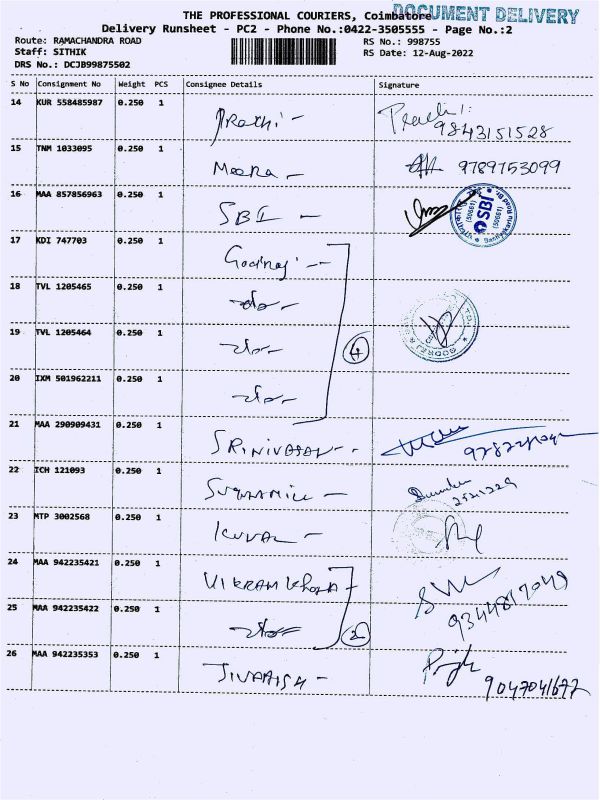 THE PROFESSIONAL COURIERS, Coimbatore
DOCUMENT DELIVERY
Delivery Runsheet - PC2 - Phone No.:0422-3505555 - Page No.:2
Route: RAMACHANDRA ROAD RS No.: 998755
Staff: SITHIK RS Date: 12-Aug-2022
DRS No.: DCJB99875502
S No Consignment No Weight PCS Consignee Details Signature
14 KUR 558485987 0.250 1 Prathi -
9843151528
15 TNM 1033095 0.250 1 Meena - 9789753099
16 MAA 857856963 0.250 1 SBI - SBI
17 KDI 747703 0.250 1
18 TVL 1205465 0.250 1 -do-
19 TVL 1205464 0.250 1 -do- 4
20 IXM 501962211 0.250 1 -do-
21 MAA 290909431 0.250 1 SRINIVASAN - -
22 ICH 121093 0.250 1
23 MTP 3002568 0.250 1
24 MAA 942235421 0.250 1 VIKRAM
25 MAA 942235422 0.250 1 -do- 2 9344817049
26 MAA 942235353 0.250 1
9047041672